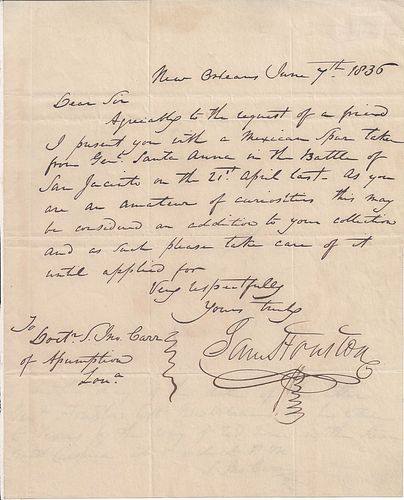 New Orleans June 7th 1836
Dear Sir
Agreeably to the request of a friend
I present you with a Mexican Spur taken
from Genl. Santa Anna in the Battle of
San Jacinto on the 21st April last. As you
are an amateur of curiosities this may
be considered an addition to your collection
and as such please take care of it
until applied for
Very respectfully
Yours truly
Sam Houston
To
Doctr. S. Jno. Carr
of Assumption
Loua.